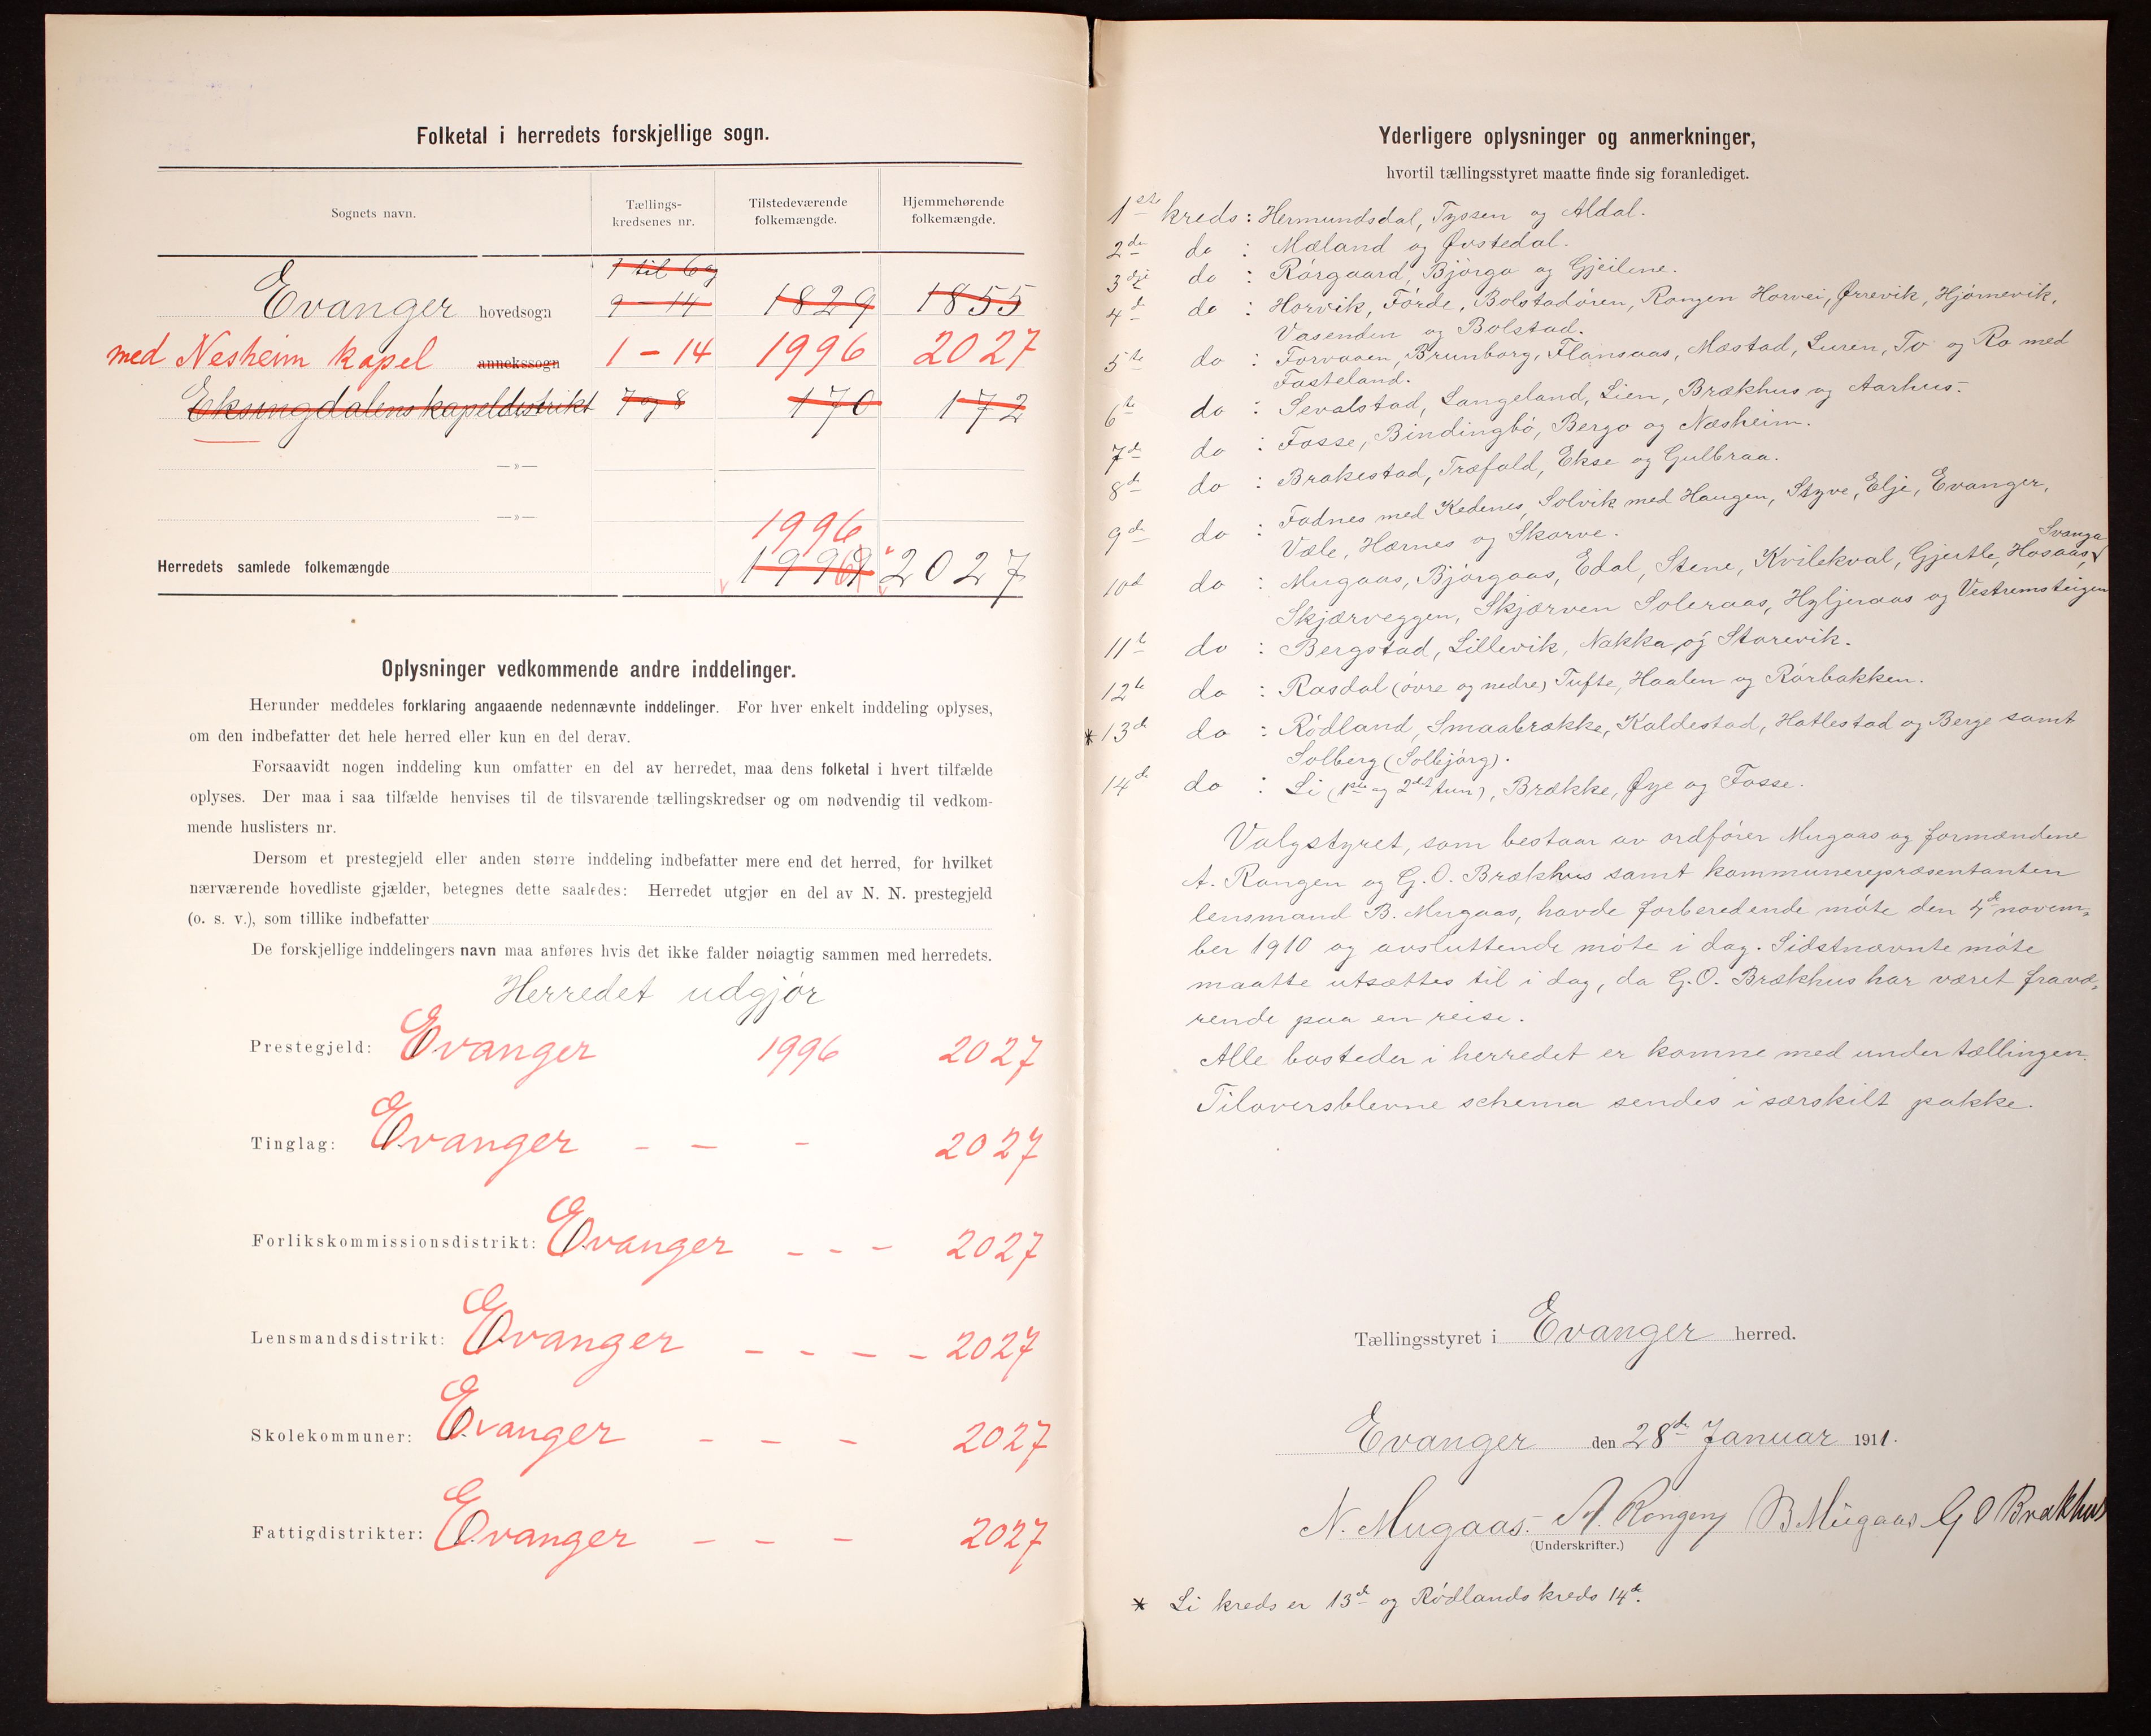 Folketal i herredets forskjellige sogn.
Sognets navn.
Tællings-
kredsenes nr.
Tilstedeværende
folkemængde.
Hjemmehørende
folkemængde.
1 til 6 og
Evanger hovedsogn 9 – 14 1829 1855
med Nesheim kapel annekssogn 1 – 14 1996 2027
Eksingdalens kapeldistrikt 7 og 8 170 172
—»—
—»—
1996
Herredets samlede folkemængde 1999 2027
Oplysninger vedkommende andre inddelinger.
Herunder meddeles forklaring angaaende nedennævnte inddelinger. For hver enkelt inddeling oplyses,
om den indbefatter det hele herred eller kun en del derav.
Forsaavidt nogen inddeling kun omfatter en del av herredet, maa dens folketal i hvert tilfælde
oplyses. Der maa i saa tilfælde henvises til de tilsvarende tællingskredser og om nødvendig til vedkom-
mende huslisters nr.
Dersom et prestegjeld eller anden større inddeling indbefatter mere end det herred, for hvilket
nærværende hovedliste gjælder, betegnes dette saaledes: Herredet utgjør en del av N. N. prestegjeld
(o. s. v.), som tillike indbefatter
De forskjellige inddelingers navn maa anføres hvis det ikke falder nøiagtig sammen med herredets.
Herredet udgjør
Prestegjeld: Evanger 1996 2027
Tinglag: Evanger – – - 2027
Forlikskommissionsdistrikt: Evanger – – – 2027
Lensmandsdistrikt: Evanger – – – – 2027
Skolekommuner: Evanger – – – 2027
Fattigdistrikter: Evanger – – – 2027
Yderligere oplysninger og anmerkninger,
hvortil tællingsstyret maatte finde sig foranlediget.
1ste kreds: Hermundsdal, Tyssen og Aldal.
2de do : Mæland og Øvstedal.
3dje do : Rørgaard, Bjørgo og Gjeilene.
4de do : Horvik, Førde, Bolstadøren, Rongen Horvei, Ørrevik, Hjørnevik,
Vasenden og Bolstad.
5te do : Forvaaen, Brunborg, Flansaas, Mæstad, Luren, To og Ro med
Fasteland.
6te do : Sevalstad, Langeland, Lien, Brækhus og Aarhus.-
7de do : Fosse, Bindingbø, Bergo og Næsheim.
8de do : Brakestad, Træfald, Ekse og Gulbraa.
9de do : Fadnes med Kedenes, Solvik med Haugen, Styve, Elje, Evanger,
Væle, Hærnes og Skorve.
Svanga
10de do : Mugaas, Bjørgaas, Edal, Stene, Kvilekval, Gjertle, Hosaas,
Skjærveggen, Skjærven Soleraas, Hyljeraas og Vestremsteigen
11te do : Bergstad, Lillevik, Nakka, og Storevik.
12te do : Rasdal (øvre og nedre) Tufte, Haalen og Rørbakken.
* 13de do : Rødland, Smaabrække, Kaldestad, Hatlestad og Berge samt
Solberg (Solbjørg).
14de do : Li (1ste og 2det tun), Brække, Øye og Fosse.
Valgstyret, som bestaar av ordfører Mugaas og formændene
A. Rongen og G. O. Brækhus samt kommunerepræsentanten
lensmand B. Mugaas, havde forberedende møte den 4de novem-
ber 1910 og avsluttende møte i dag. Sidstnævnte møte
maatte utsættes til i dag, da G. O. Brækhus har været fravæ-
rende paa en reise.
Alle bosteder i herredet er komne med under tællingen.
Tiloversblevne schema sendes i særskilt pakke.
Tællingsstyret i Evanger herred.
Evanger den 28de Januar 1911.
N. Mugaas.- A. Rongen B Mugaas G O Brækhus
(Underskrifter.)
* Li kreds er 13de og Rødlands kreds 14de.